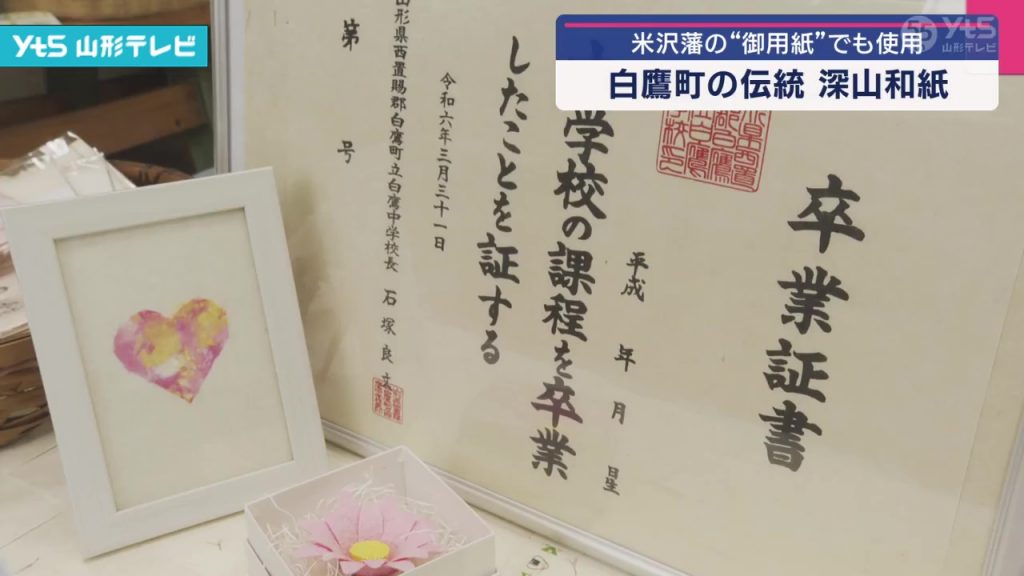 yts 山形テレビ
米沢藩の“御用紙”でも使用
白鷹町の伝統 深山和紙
yts
山形テレビ
卒業証書
平成 年 月 星
学校の課程を卒業
したことを証する
令和六年三月三十一日
山形県西置賜郡白鷹町立白鷹中学校長 石塚良立
第 号